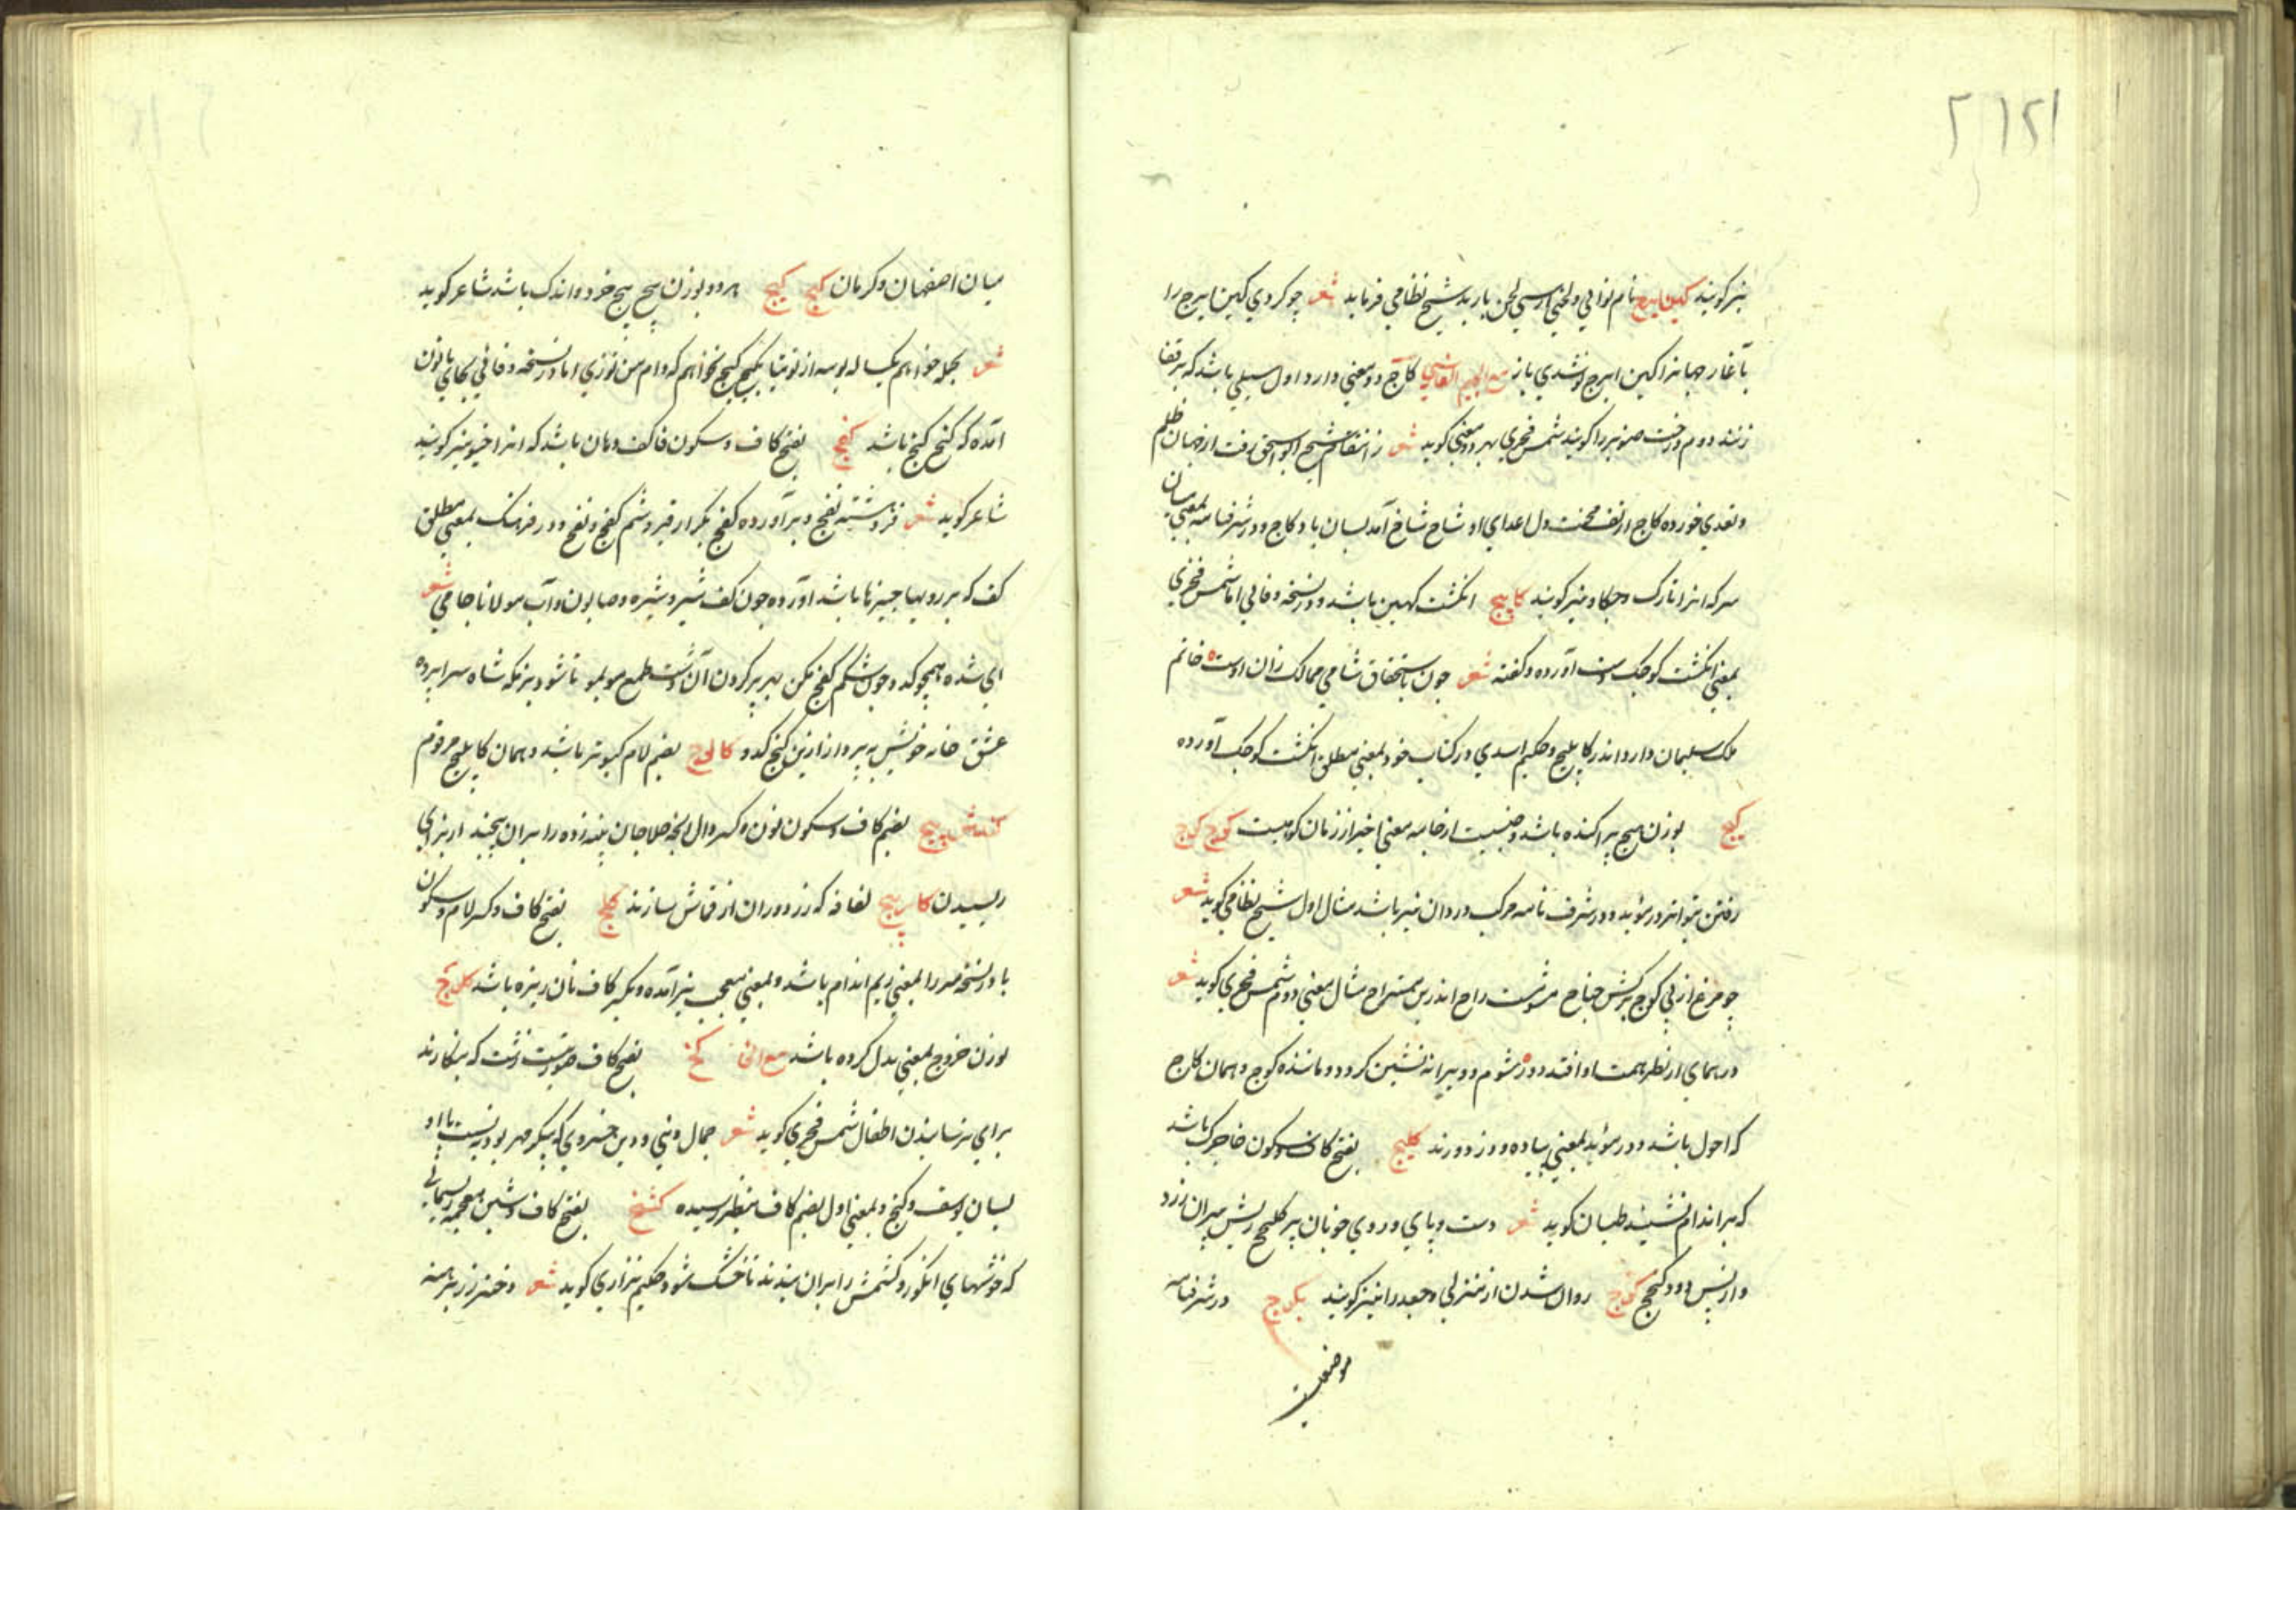 نیز گویند کین ایرج نام نوائی و لحنی از سی لحن باربد شیخ نظامی فرماید شعر چو کردی کین ایرج را
بآغاز جهانرا کین ایرج نو شدی باز مع الجیم الفارسی کاج دو معنی دارد اول سیلی باشد که بر قفا
زنند دوم درخت صنوبر را گویند شمس فخری بهر دو معنی گوید شعر ز انتقام شیخ ابو اسحق رفت از جهان ظلم
و تعدی خورده کاج از تف محنت دل اعدای او شاخ شاخ آمد بسان باد کاج و در شرفنامه بمعنی میان
سر که انرا تارک و چکاد نیز گویند کابیج انگشت کهین باشد و در نسخه وفائی اما شمس فخری
بمعنی انگشت کوچک دست آورده و گفته شعر چون باستحقاق شاهی ممالک زان اوست خاتم
ملک سلیمان دارد اندر کابلیج و حکیم اسدی در کتاب خود بمعنی مطلق انگشت کوچک آورده
کیج بوزن هیچ پراکنده باشد و جنسیست از جامه معنی اخیر از زفان گویاست کوچ کوچ
رفتن بتواتر در مؤید و در شرف نامه مرکب دردان نیز باشد مثال اول شیخ نظامی گوید شعر
چو مرغ از پی کوچ برکش جناح مشو مست راح اندرین مستراح مثال معنی دوم شمس فخری گوید شعر
در همای از نظر همت او افتد دور شوم و ویرانه نشین گردد و مانده کوچ و همان کاج
که احول باشد و در مؤید بمعنی پیاده و دزد و رند کلیج بفتح کاف و سکون خا چرک باشد
که بر اندام نشیند طیان گوید شعر دست و پای و روی خوبان پر کلیج ریش پیران زرد
و از پس دود کیج کوچ روان شدن از منزلی و جعد را نیز گویند بکوچ در شرفنامه
موضعیست
میان اصفهان و کرمان کیج کیج هر دو بوزن هیچ هیچ خرد و اندک باشد شاعر گوید
شعر بجمله خواهم یکساله بوسه از تو بتا بکیج کیج نخواهم که وام من توزی اما در نسخه وفائی بجای یا نون
آمده که کنج کنج باشد کفج بفتح کاف و سکون فا کف دهان باشد که انرا خیو نیز گویند
شاعر گوید شعر فروهشته لفج و برآورده کفج بکردار قیر و شم کفج و لفج و در فرهنگ بمعنی مطلق
کف که بر رویهای چیزها باشد آورده چون کف شیر و شیره و صابون و آب مولانا جامی شعر
ای شده همچو کدو جوش شکم کفج مکن بهر پر کردن آن دست طمع سو بسو تا شود بزمگه شاه سراپرده
عشق خانه خویش بپرداز ازین کنج کدو کالوج بضم لام کبوتر باشد و همان کابلیج مرقوم
کندش پیچ بضم کاف و سکون نون و کسر دال آنچه حلاجان پنبه زده را بران پیچند از برای
ریسیدن کار پیچ لفافه که زردوزان از قماش سازند کلج بفتح کاف و کسر لام و سکون
یا در نسخه میرزا بمعنی ریم اندام باشد و بمعنی معجب نیز آمده و بکسر کاف نان ریزه باشد کلوج
بوزن خروج بمعنی بدل کرده باشد مع الخا کخ بفتح کاف صورتیست زشت که بنگارند
برای ترسانیدن اطفال شمس فخری گوید شعر جمال دنیی و دین خسروی که پیکر مهر بود به نسبت با او
بسان یوسف و کخ و بمعنی اول بضم کاف بنظر رسیده کشخ بفتح کاف و شین معجمه ریسمانی
که خوشهای انگور و کشمش را بران بندند تا خشک شود حکیم نزاری گوید شعر دختر رز برهنه